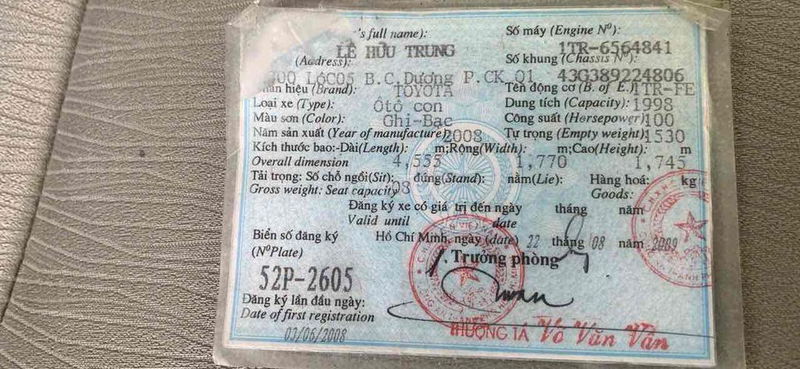 's full name): Số máy (Engine Nº):
LÊ HỮU TRUNG 1TR-6564841
(Address): Số khung (Chassis Nº):
LôC05 B.C.Dương P.CK Q1 43G389224806
hiệu (Brand): TOYOTA Tên động cơ (B. of E.) 1TR-FE
Loại xe (Type): Ôtô con Dung tích (Capacity): 1998
Màu sơn (Color): Ghi-Bạc Công suất (Horsepower) 100
Năm sản xuất (Year of manufacture) 2008 Tự trọng (Empty weight) 1530
Kích thước bao:-Dài(Length): m;Rộng(Width): m;Cao(Height): m
Overall dimension 4,555 1,770 1,745
Tải trọng: Số chỗ ngồi(Sit): đứng(Stand): nằm(Lie): Hàng hoá: kg
Gross weight: Seat capacity 08 Goods:
Đăng ký xe có giá trị đến ngày tháng năm
Valid until date
Biển số đăng ký Hồ Chí Minh, ngày (date) 22 tháng 08 năm 2009
(NºPlate) Trưởng phòng
52P-2605
Đăng ký lần đầu ngày:
Date of first registration THƯỢNG TÁ Võ Văn Vân
03/06/2008